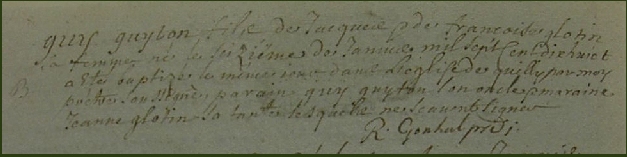 guy guyton fils de Jacques & de francoise glotin
sa femme né le seizième de Janvier mil sept cent dix huict
B a esté baptizé le même jour dans l'eglise de quilly par moy
prêtre soussigné, parain guy guyton son oncle & maraine
Jeanne glotin sa tante lesquels ne scavent signer
R. Gonhal